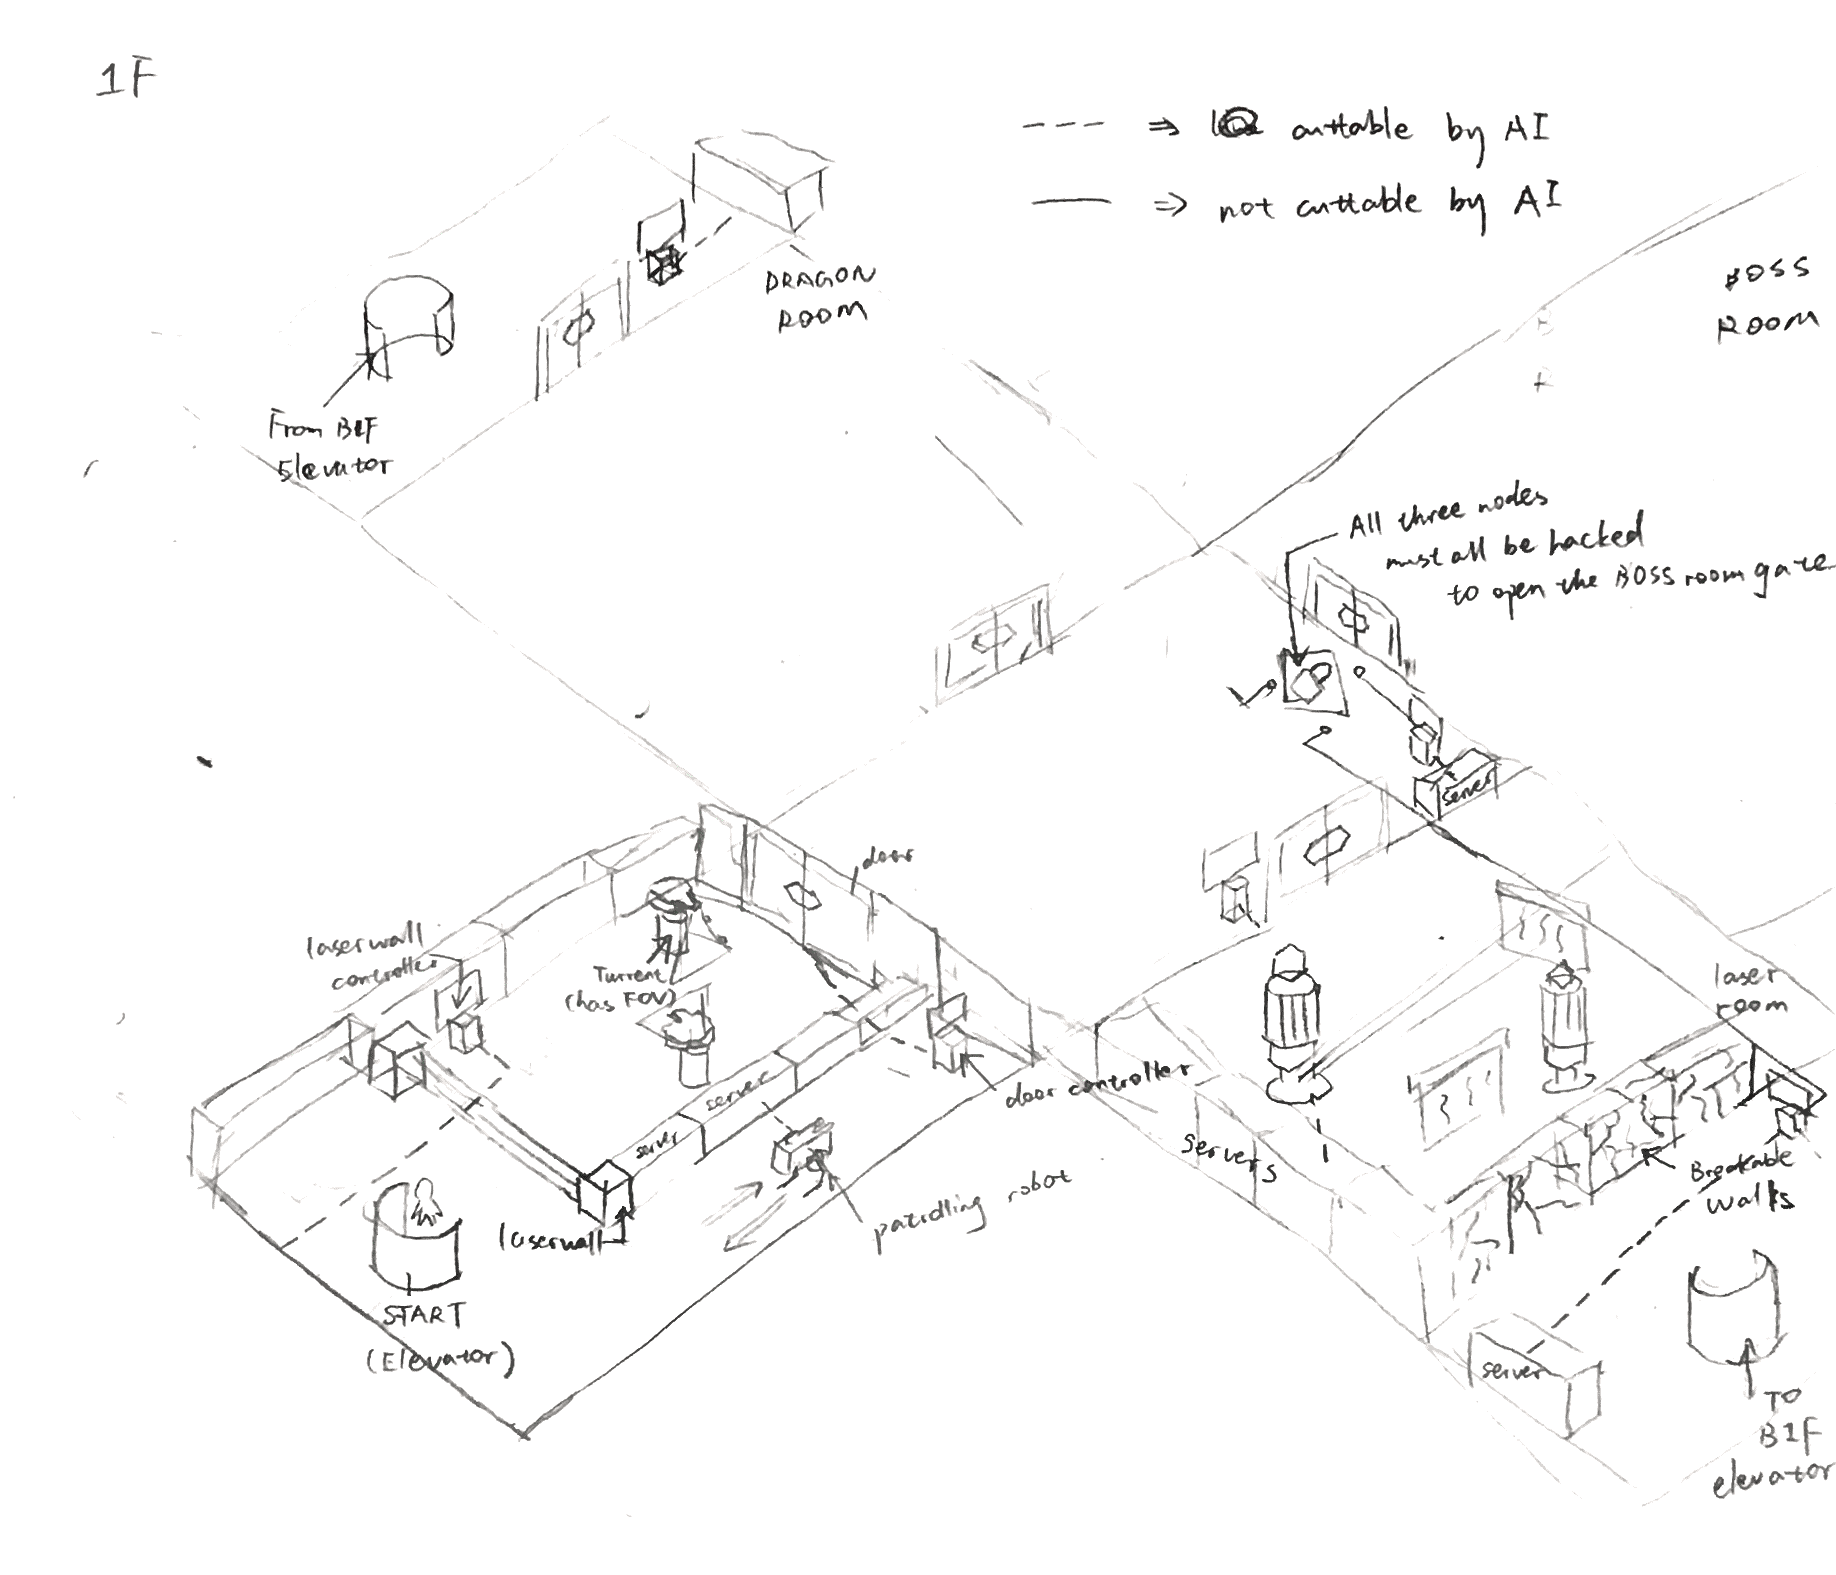 1F
⇒ cuttable by AI
⇒ not cuttable by AI
DRAGON
ROOM
BOSS
ROOM
From B1F
Elevator
All three nodes
must all be hacked
to open the BOSS room gate
server
door
laserwall
controller
Turrent
(has FOV)
laser
room
server
server
door controller
servers
Breakable
walks
patrolling robot
laserwall
START
(Elevator)
server
TO
B1F
elevator